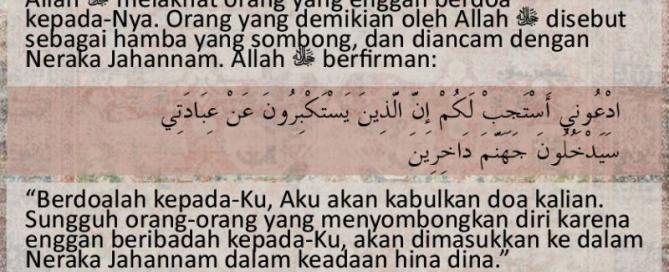 Allah ﷻ melaknat orang yang enggan berdoa
kepada-Nya. Orang yang demikian oleh Allah ﷻ disebut
sebagai hamba yang sombong, dan diancam dengan
Neraka Jahannam. Allah ﷻ berfirman:
ادْعُونِي أَسْتَجِبْ لَكُمْ إِنَّ الَّذِينَ يَسْتَكْبِرُونَ عَنْ عِبَادَتِي
سَيَدْخُلُونَ جَهَنَّمَ دَاخِرِينَ
“Berdoalah kepada-Ku, Aku akan kabulkan doa kalian.
Sungguh orang-orang yang menyombongkan diri karena
enggan beribadah kepada-Ku, akan dimasukkan ke dalam
Neraka Jahannam dalam keadaan hina dina.”